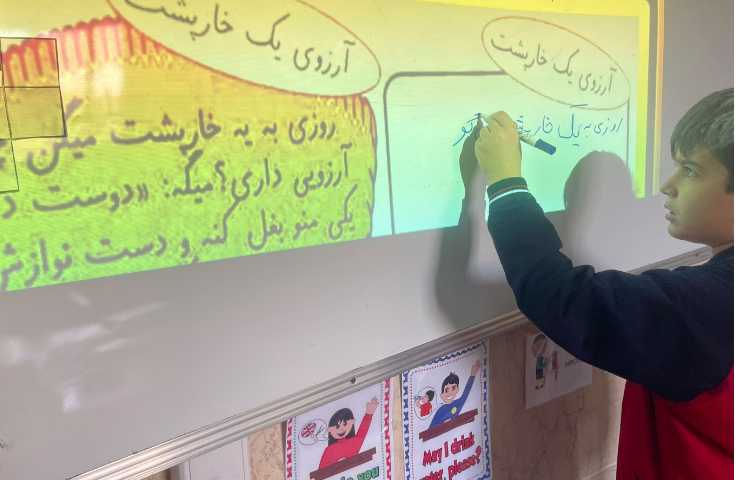 آرزوی یک خارپشت
آرزوی یک خارپشت
روزی به یک
روزی به یه خارپشت میگن
آرزویی داری؟ میگه: «دوست د
یکی منو بغل کنه و دست نوازش
May I drink
please?
you